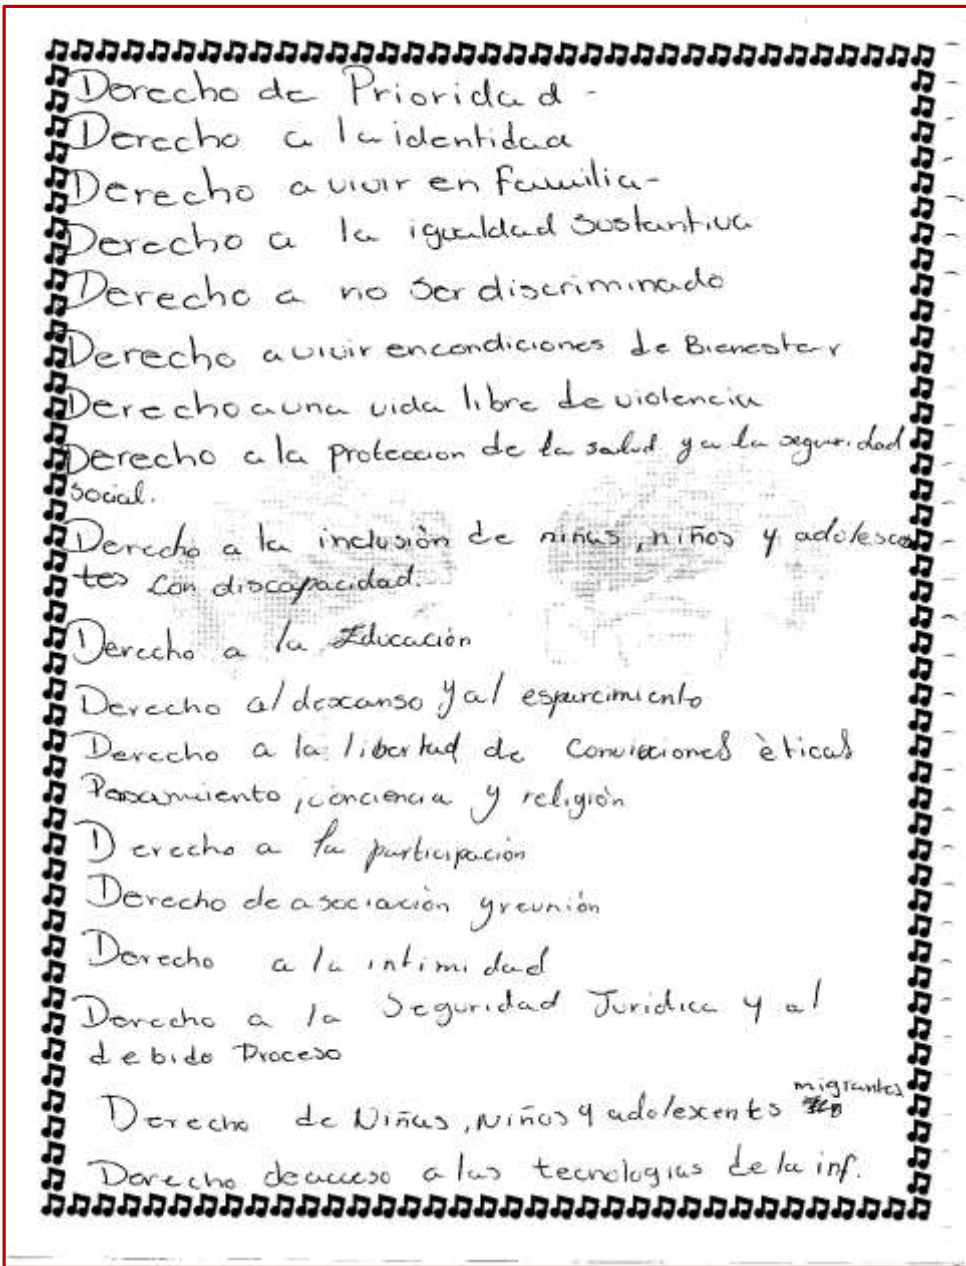 Derecho de Prioridad -
Derecho a la identidad
Derecho a vivir en familia-
Derecho a la igualdad sustantiva
Derecho a no ser discriminado
Derecho a vivir en condiciones de Bienestar
Derecho a una vida libre de violencia
Derecho a la proteccion de la salud y a la seguridad
social.
Derecho a la inclusión de niñas, niños y adolescen
tes con discapacidad.
Derecho a la Educación
Derecho al descanso y al esparcimiento
Derecho a la libertad de convicciones èticas
Pensamiento, conciencia y religión
Derecho a la participación
Derecho de asociación y reunión
Derecho a la intimidad
Derecho a la Seguridad Jurídica y al
debido Proceso
migrantes
Derecho de Niñas, Niños y adolescents
Derecho de acceso a las tecnologias de la inf.